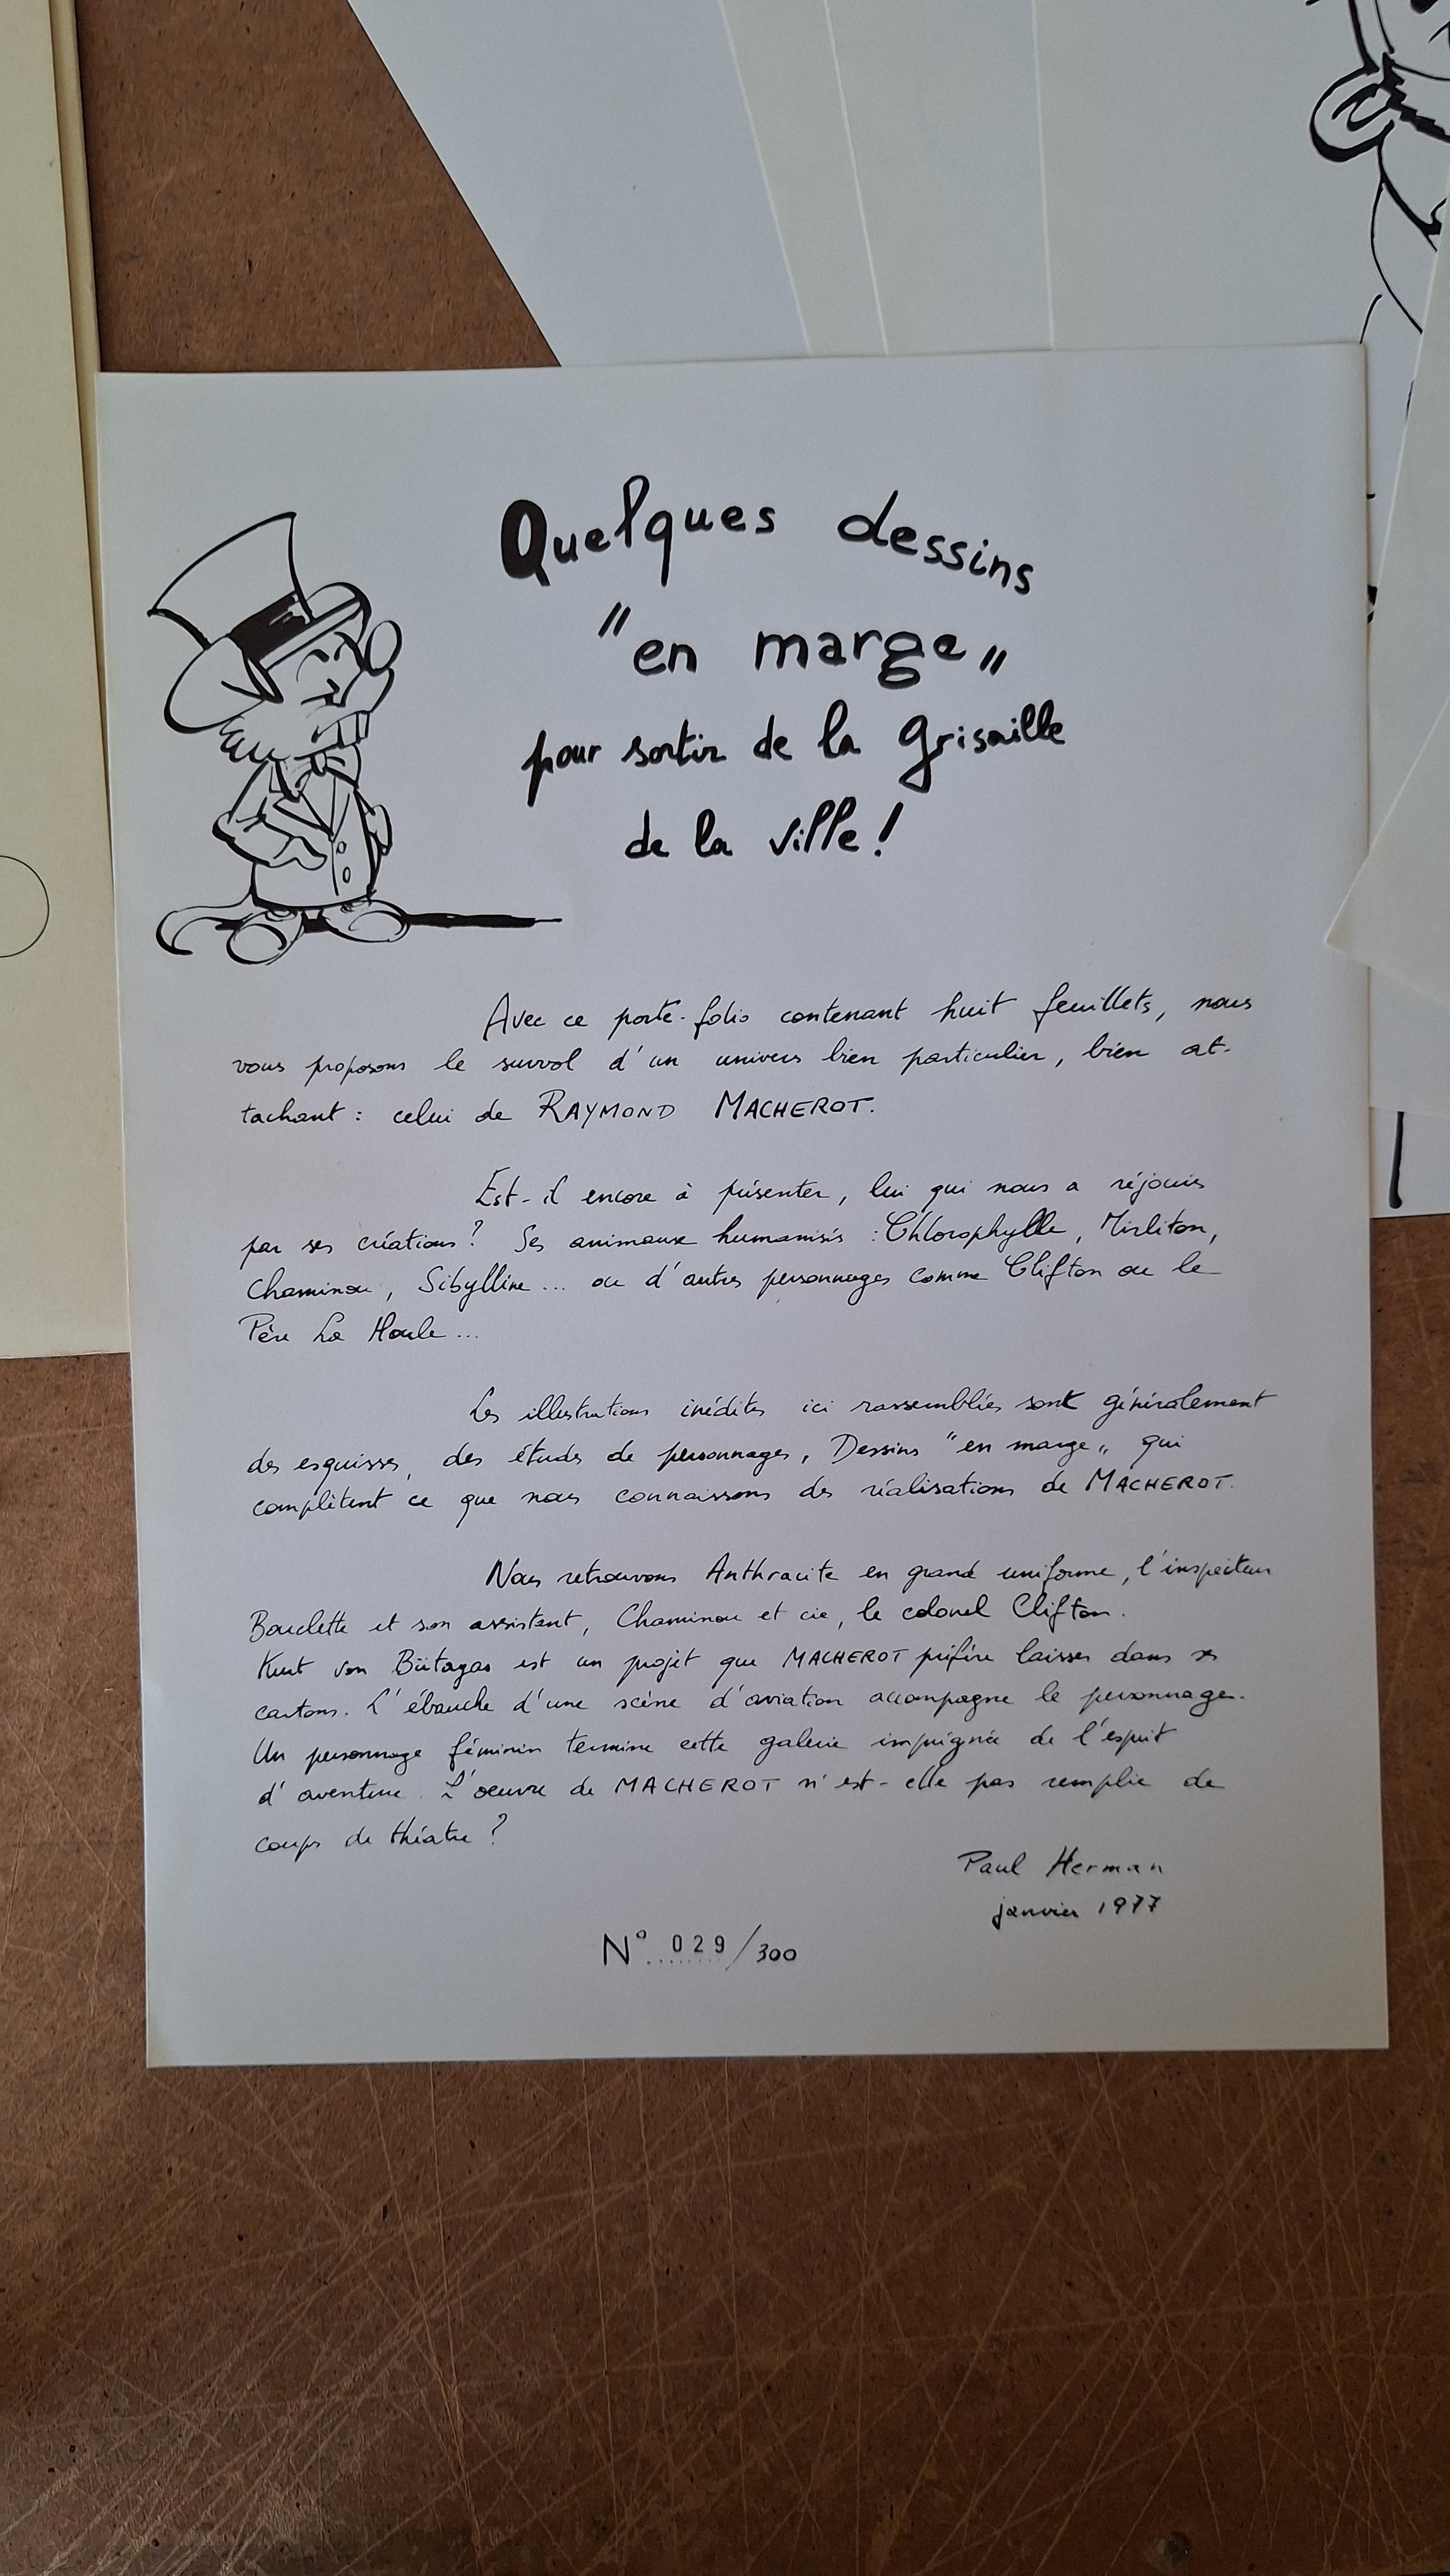 Quelques dessins
"en marge"
pour sortir de la grisaille
de la ville !
Avec ce porte-folio contenant huit feuillets, nous
vous proposons le survol d'un univers bien particulier, bien at-
tachant : celui de RAYMOND MACHEROT.
Est-il encore à présenter, lui qui nous a réjouis
par ses créations ? Ses animaux humanisés : Chlorophylle, Mirliton,
Chaminou, Sibylline... ou d'autres personnages comme Clifton ou le
Père La Houle...
Les illustrations inédites ici rassemblées sont généralement
des esquisses, des études de personnages, Dessins "en marge" qui
complètent ce que nous connaissons des réalisations de MACHEROT.
Nous retrouvons Anthracite en grand uniforme, l'inspecteur
Bouclette et son assistant, Chaminou et cie, le colonel Clifton.
Kurt von Bütagas est un projet que MACHEROT préfère laisser dans ses
cartons. L'ébauche d'une scène d'aviation accompagne le personnage.
Un personnage féminin termine cette galerie imprégnée de l'esprit
d'aventure. L'oeuvre de MACHEROT n'est-elle pas remplie de
coups de théatre ?
Paul Herman
janvier 1977
N° 029/300